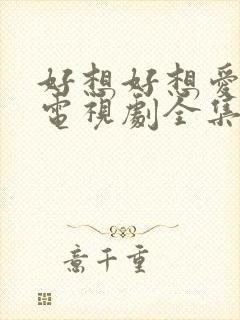 好想好想愛
電視劇全集
意千重